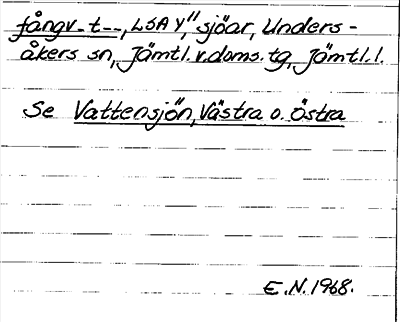 fångv. t--, LSA Y," sjöar, Unders-
åkers sn, Jämtl.v.doms.tg, Jämtl.l.
Se Vattensjön, Västra o. Östra
E.N. 1968.